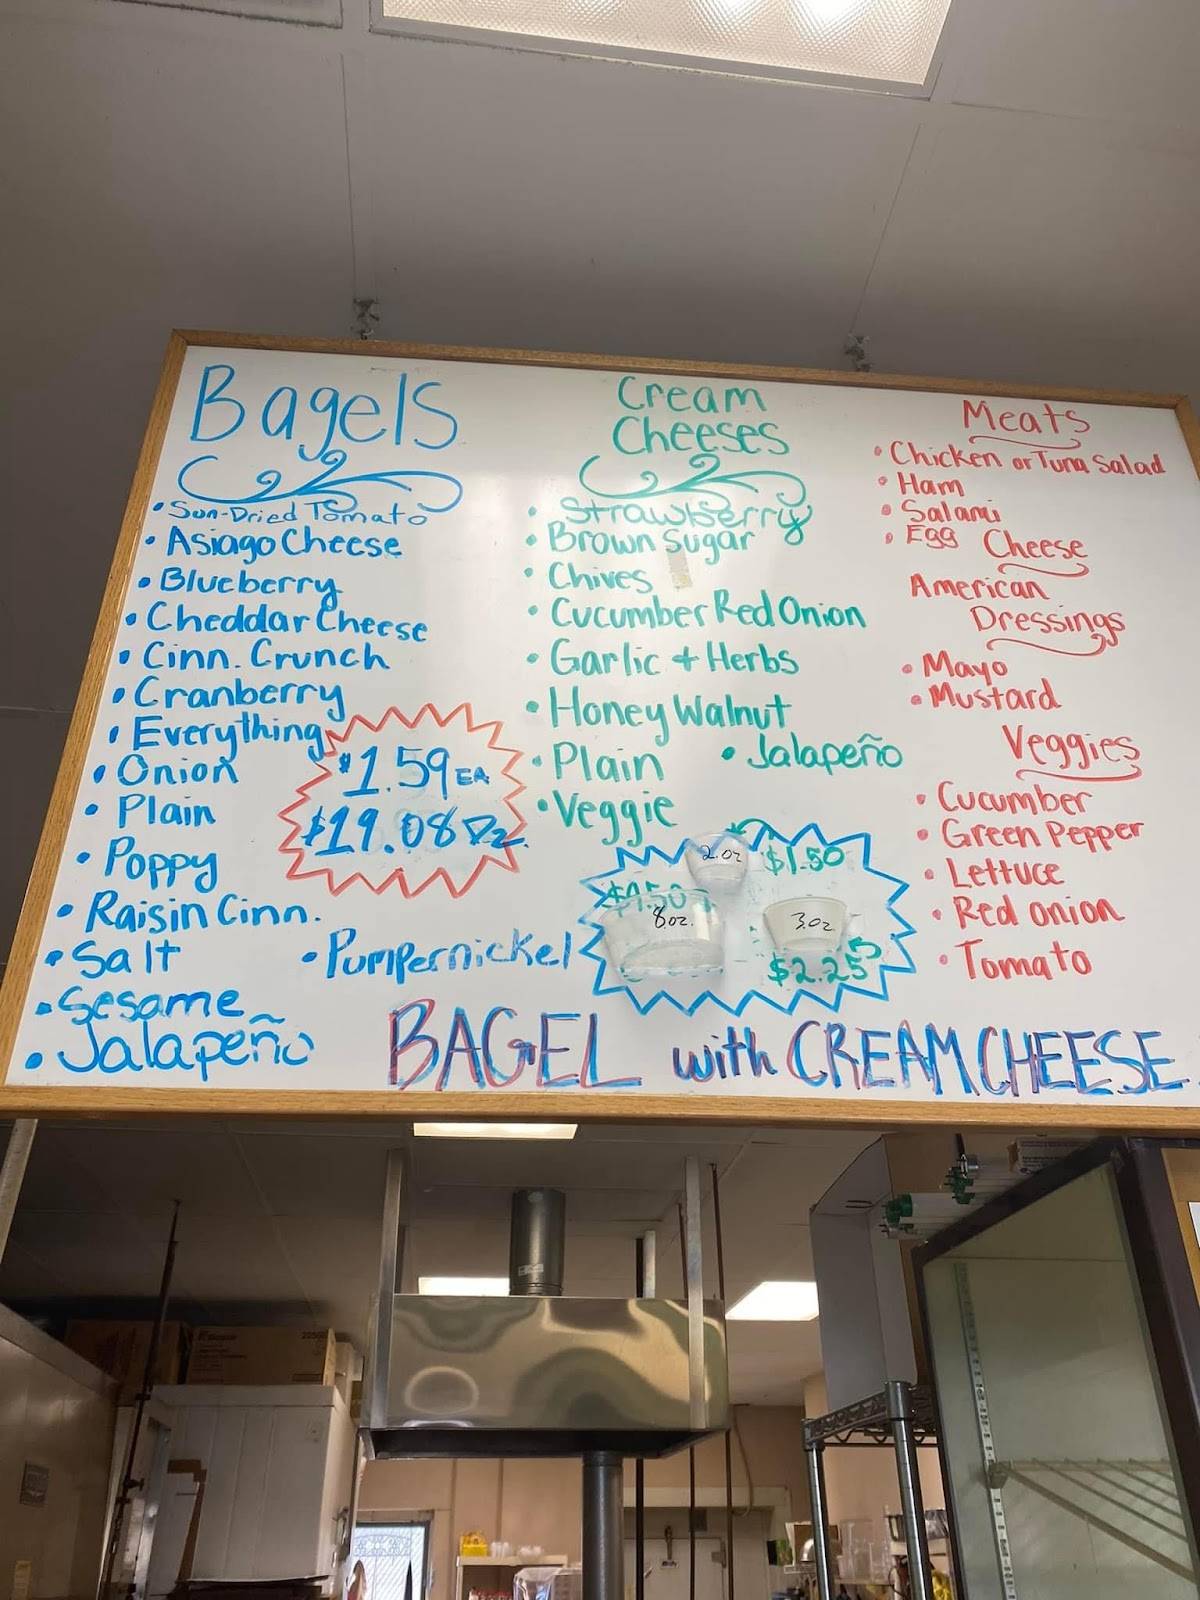 Bagels
• Sun-Dried Tomato
• Asiago Cheese
• Blueberry
• Cheddar Cheese
• Cinn. Crunch
• Cranberry
• Everything
• Onion
• Plain
• Poppy
• Raisin Cinn.
• Salt
• Pumpernickel
• Sesame
• Jalapeño
$1.59 EA
$19.08 Dz.
Cream
Cheeses
• Strawberry
• Brown Sugar
• Chives
• Cucumber Red Onion
• Garlic + Herbs
• Honey Walnut
• Plain
• Jalapeño
• Veggie
2.oz
$1.50
8oz.
3.oz
$2.25
Meats
• Chicken or Tuna Salad
• Ham
• Salami
• Egg
Cheese
American
Dressings
• Mayo
• Mustard
Veggies
• Cucumber
• Green Pepper
• Lettuce
• Red onion
• Tomato
BAGEL with CREAM CHEESE